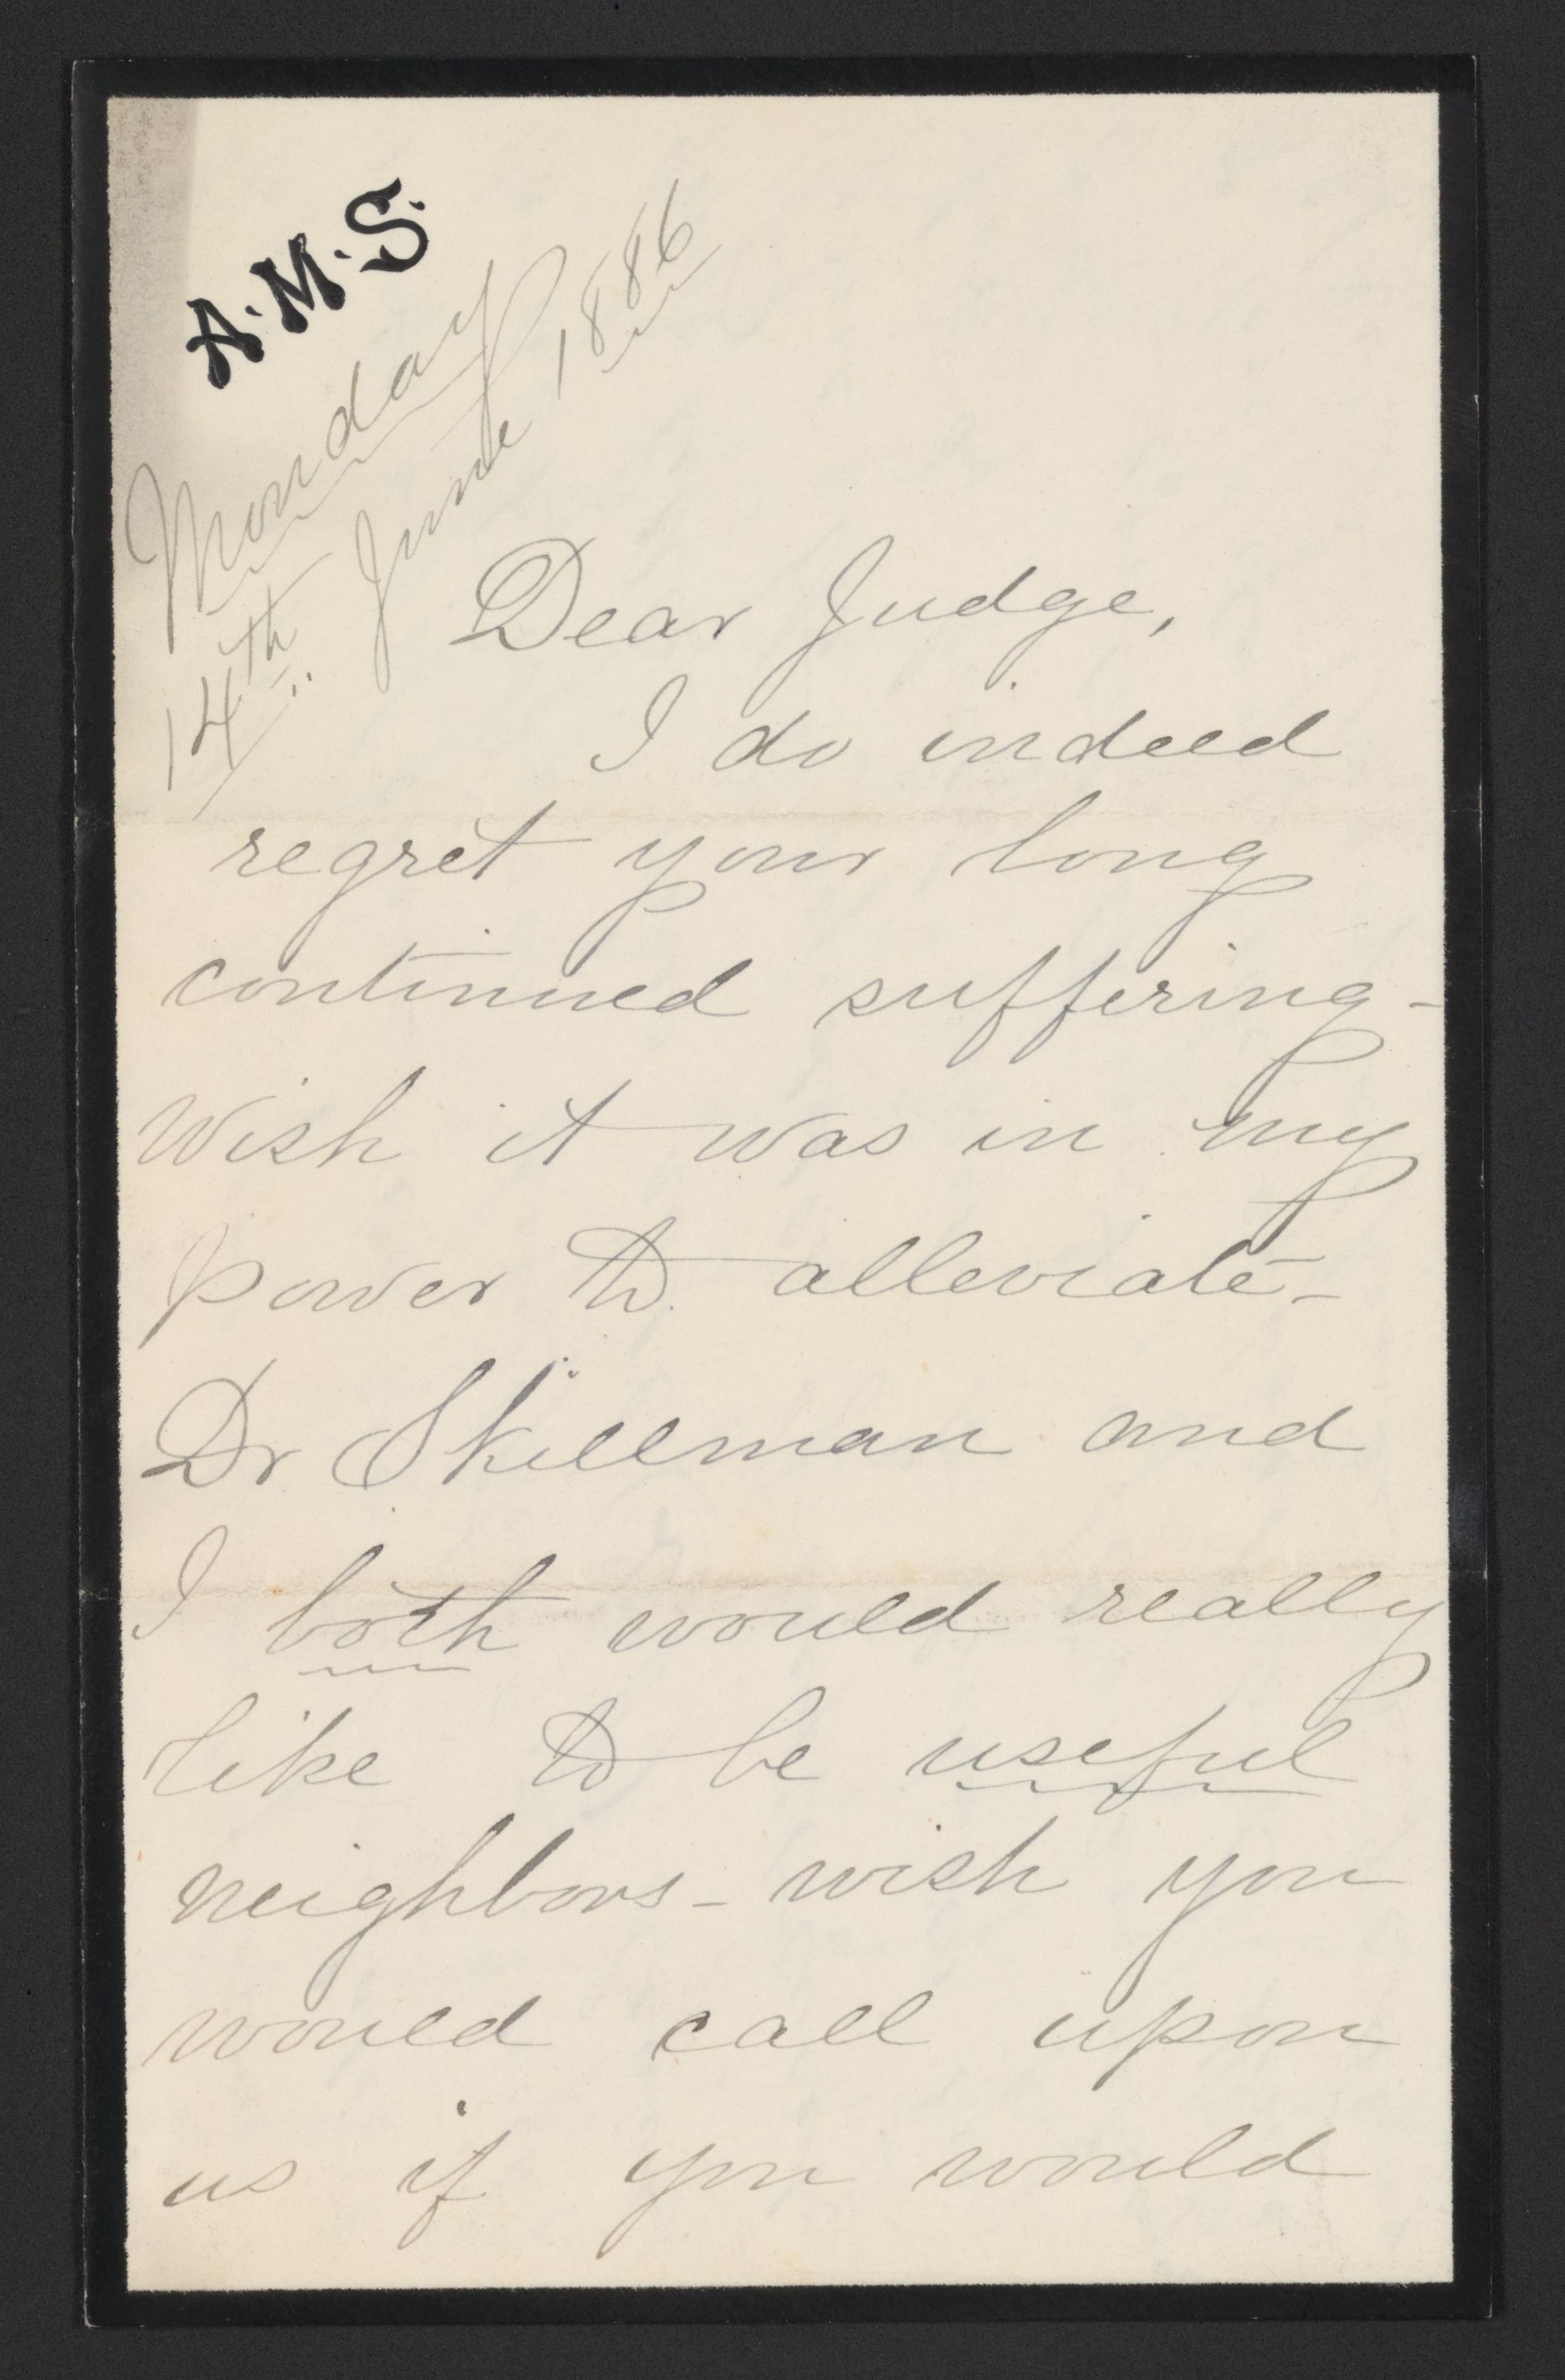 A.M.S.
Monday
14th June 1886
Dear Judge,
I do indeed
regret your long
continued suffering -
Wish it was in my
power to alleviate -
Dr Skillman and
I both would really
like to be useful
neighbors - wish you
would call upon
us if you would